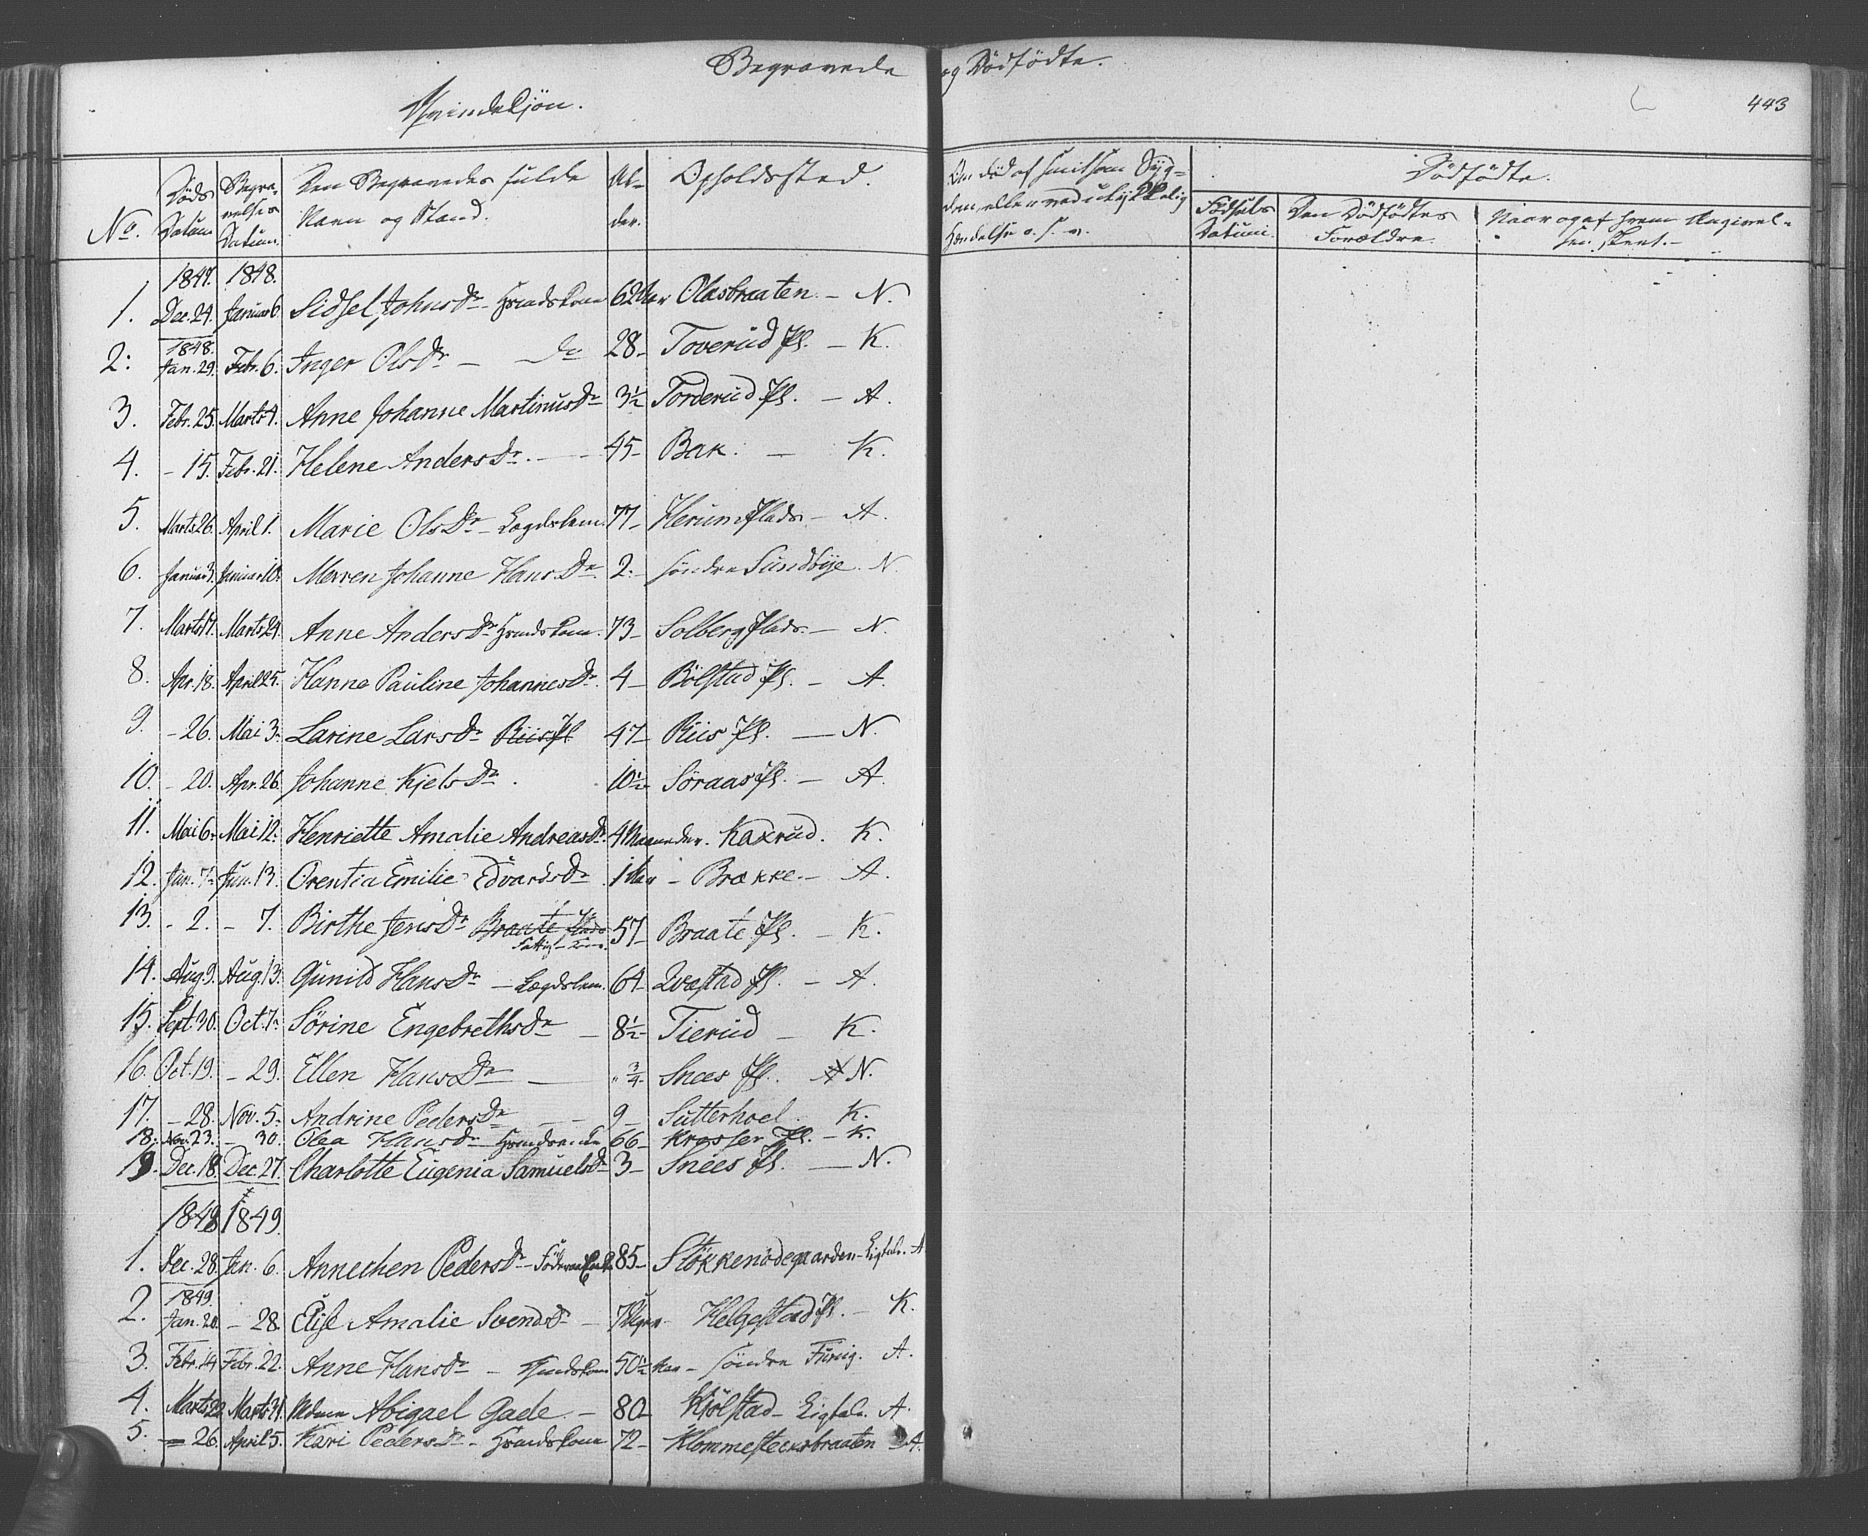 Begravede og Dødfødte.
443
Qvindekjøn.
No. Døds Datum. Begravelses Datum. Den Begravedes fulde Navn og Stand. Alder. Opholdssted. Om død af smitsom Sygdom, eller ved ulykkelig Hændelse o. s. v. Dødfødte.
Fødsels Datum. Den Dødfødtes Forældre. Naar og af hvem Angivelsen skeet.
1847. 1848.
1. Dec. 24. Januar 6. Sidsel Johnsdr. Huusmands Kone 62 Aar Olasbraaten - N.
1848.
2. Jan. 29. Febr. 6. Inger Olsdr. - do 28 - Toverud Pl. - K.
3. Febr. 25. Marts 4. Anne Johanne Martinusdr. 3½ Torderud Pl. - A.
4. - 15. Febr. 21. Helene Andersdr. - 45 - Bak. - K.
5. Marts 26. April 1. Marie Olsdr. - Lægdslem. 77 - Herum Plads - A.
6. Januar 3. Januar 10. Merren Johanne Hansdr. 2. søndre Sundbye. N.
7. Marts 17. Marts 24. Anne Andersdr. 73 - Solberg Plads. - N.
8. Apr. 18. April 25. Hanne Pauline Johannesdr. 4 - Bölstad Pl. - A.
9. - 26. Mai 3. Larine Larsdr. Riis Pl 47 - Riis Pl. - N.
10. - 20. Apr. 26. Johanne Kjelsdr. 10½ Søraas Pl. - A.
11. Mai 6. Mai 12. Henriette Amalie Andreasdr. 4 Maaneder. Kaxrud. K.
12. Jun. 7. Jun. 13. Orentia Emilie Edvardsdr. 1 Aar - Brække. - A.
13. - 2. - 7. Birthe Jensdr. Braate Plads 57 - Braate Pl. - K.
14. Aug 9. Aug. 13. Gunild Hansdr. - Lægdslem. 64 - Qvestad Pl. - A.
15. Sept. 30. Oct. 7. Sörine Engebrethsdr. - 8½ Tierud - K.
16. Oct. 19. - 29. Ellen Hansdr. - " ¾ Snees Pl. N.
17. - 28. Nov. 5. Andrine Pedersdr. - 9 - Sutterhoel. K.
18. Nov. 23. - 30. Olea Hansdr. 66 - Krosser Pl. - K.
19. Dec. 18. Dec. 27. Charlotte Eugenia Samuelsdr. 3 - Snees Pl. - N.
1848 1849.
1. Dec. 28. Jan. 6. Annechen Pedersdr. - 85 - Stökkenødegaarden - A.
1849.
2. Jan. 20. - 28. Elise Amalie Svendsdr. - Helgestad Pl. - K.
3. Febr. 14 Febr. 22. Anne Hansdr. - 50½ Aar - søndre Furuig. A.
4. Marts 22 Marts 31. Abigael Gade. - 80 - Kjölstad - A.
5. - 26. April 5. Kari Pedersdr. - 72 - Klommesteensbraaten - A.